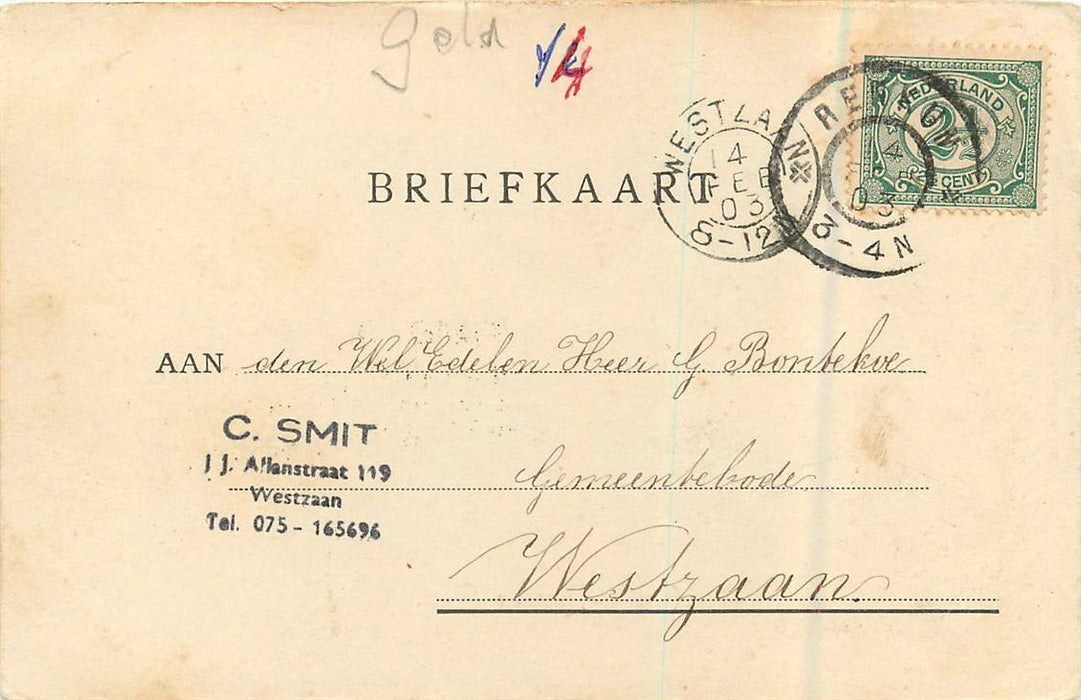 WESTZAAN
14
FEB
03
8-12V
4
03
3-4N
NEDERLAND
2½
2½ CENT
BRIEFKAART
AAN den Wel Edelen Heer G. Bontekoe
C. SMIT
J. J. Allanstraat 119
Westzaan
Tel. 075 - 165696
Gemeentebode
Westzaan